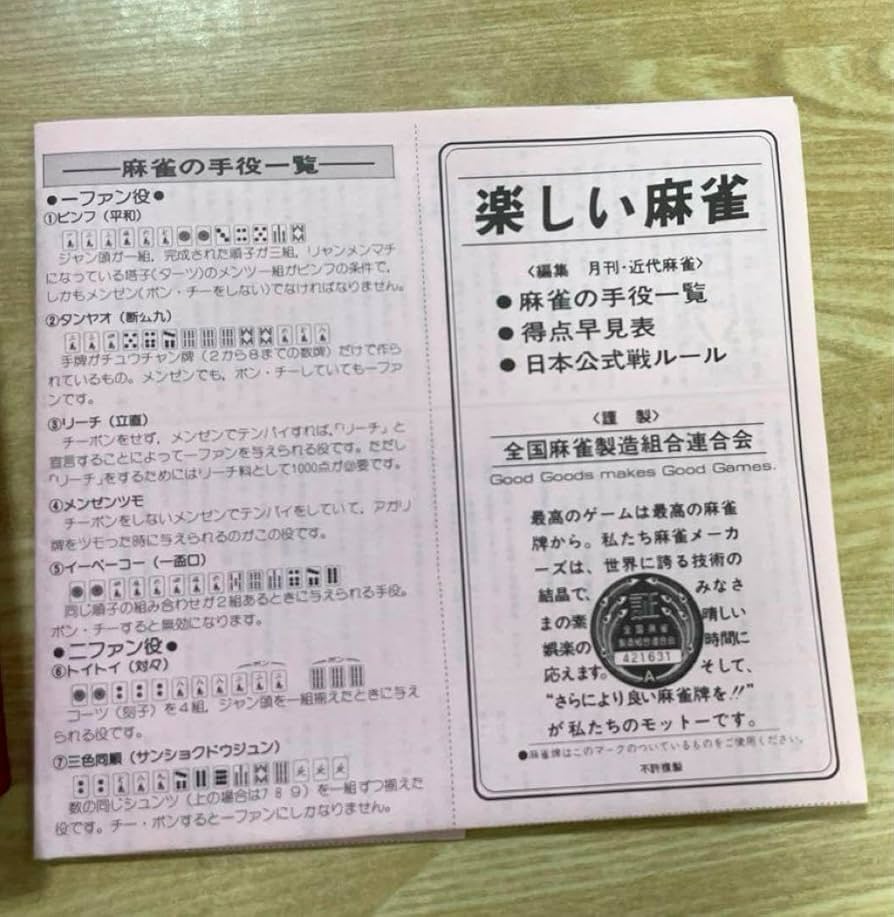 麻雀の手役一覧
●一ファン役●
①ピンフ（平和）
ジャン頭が一組，完成された順子が三組，リャンメンマチ
になっている塔子(ターツ)のメンツ一組がピンフの条件で，
しかもメンゼン(ポン・チーをしない)でなければなりません。
②タンヤオ（断么九）
手牌がチュウチャン牌（2から8までの数牌）だけで作ら
れているもの。メンゼンでも，ポン・チーしていても一ファ
ンです。
③リーチ（立直）
チーポンをせず，メンゼンでテンパイすれば，「リーチ」と
宣言することによって一ファンを与えられる役です。ただし
「リーチ」をするためにはリーチ料として1000点が必要です。
④メンゼンツモ
チーポンをしないメンゼンでテンパイをしていて，アガリ
牌をツモった時に与えられるのがこの役です。
⑤イーペーコー（一盃口）
同じ順子の組み合わせが2組あるときに与えられる手役。
ポン・チーすると無効になります。
●二ファン役●
⑥トイトイ（対々）
ポン
ポン
コーツ（刻子）を4組，ジャン頭を一組揃えたときに与え
られる役です。
⑦三色同順（サンショクドウジュン）
数の同じシュンツ（上の場合は7 8 9）を一組ずつ揃えた
役です。チー・ポンすると一ファンにしかなりません。
楽しい麻雀
〈編集　月刊・近代麻雀〉
●麻雀の手役一覧
●得点早見表
●日本公式戦ルール
〈謹　製〉
全国麻雀製造組合連合会
Good Goods makes Good Games.
最高のゲームは最高の麻雀
牌から。私たち麻雀メーカ
ーズは、世界に誇る技術の
結晶で、みなさ
まの素晴しい
娯楽の時間に
応えます。そして、
“さらにより良い麻雀牌を!!”
が私たちのモットーです。
証
全国麻雀
製造組合連合会
421631
A
●麻雀牌はこのマークのついているものをご使用ください。
不許複製